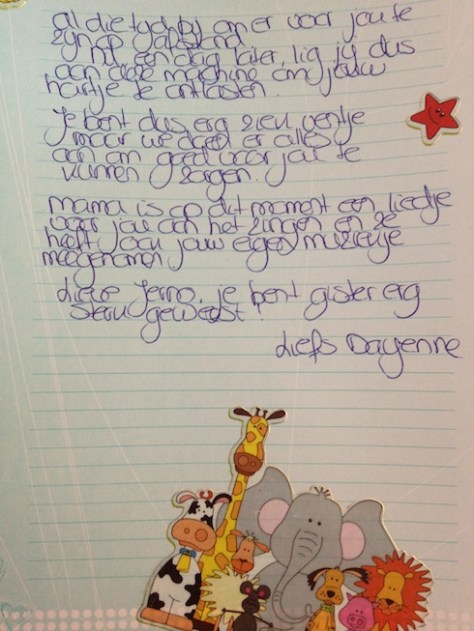 al die tijd bij om er voor jou te
zijn op afstand.
Nu, een dag later, lig jij dus
aan deze machine om jouw
hartje te ontlasten.
Je bent dus erg ziek ventje
maar we doen er alles
aan om goed voor jou te
kunnen zorgen.
mama is op dit moment een liedje
voor jou aan het zingen en ze
heeft jouw eigen muziekje
meegenomen.
Lieve, je bent gister erg
sterk geweest!
Liefs Dayenne